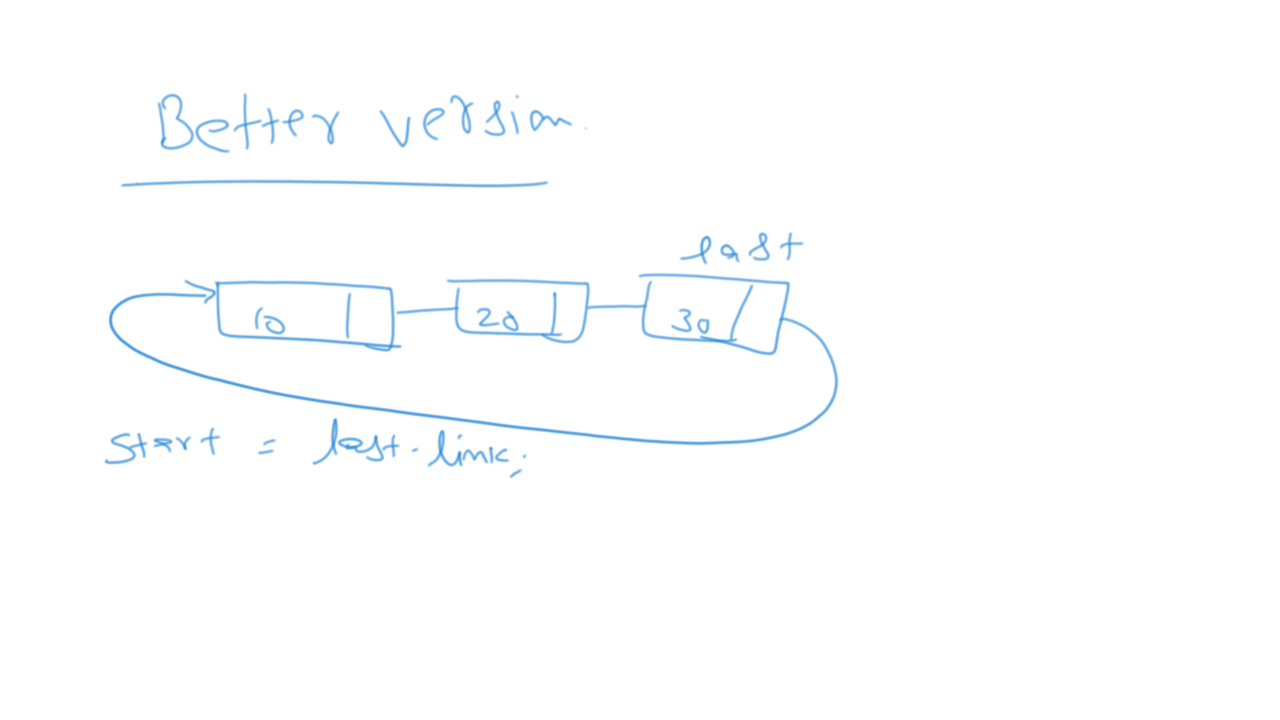 Better version
last
10 20 30
Start = last.link;